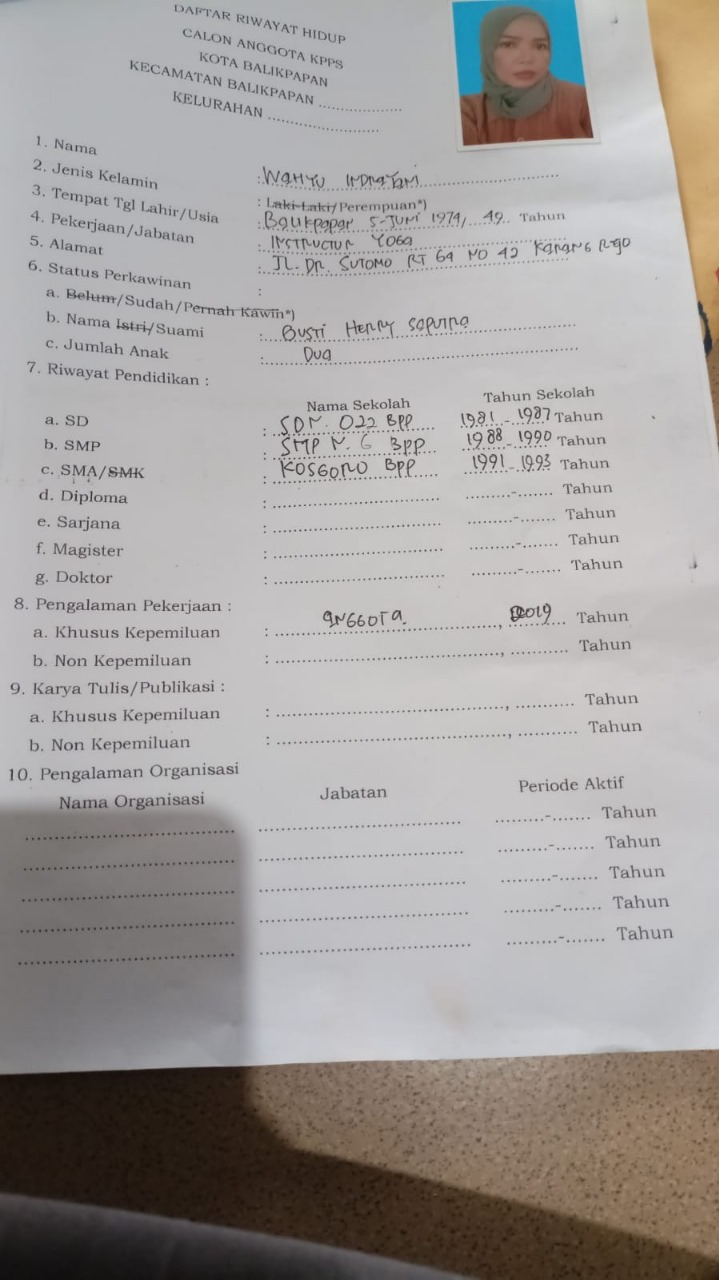 DAFTAR RIWAYAT HIDUP
CALON ANGGOTA KPPS
KOTA BALIKPAPAN
KECAMATAN BALIKPAPAN ..................
KELURAHAN ........................
1. Nama : WAHYU INDRATAM
2. Jenis Kelamin : Laki-Laki/Perempuan*)
3. Tempat Tgl Lahir/Usia : Balikpapan 5-JUNI 1974, 49 Tahun
4. Pekerjaan/Jabatan : INSTRUCTUR YOGA
5. Alamat : JL. DR. SUTOMO RT 69 NO 42 KARANG REJO
6. Status Perkawinan :
a. Belum/Sudah/Pernah Kawin*)
b. Nama Istri/Suami : GUSTI HENRY SAPUTRA
c. Jumlah Anak : DUA
7. Riwayat Pendidikan :
Nama Sekolah Tahun Sekolah
a. SD : SDN. 022 BPP 1981 - 1987 Tahun
b. SMP : SMP N. 6 BPP 1988 - 1990 Tahun
c. SMA/SMK : KOSGORO BPP 1991 - 1993 Tahun
d. Diploma : .............................. .........-....... Tahun
e. Sarjana : .............................. .........-....... Tahun
f. Magister : .............................. .........-....... Tahun
g. Doktor : .............................. .........-....... Tahun
8. Pengalaman Pekerjaan :
a. Khusus Kepemiluan : ANGGOTA, 2019 Tahun
b. Non Kepemiluan : .........................................., ........... Tahun
9. Karya Tulis/Publikasi :
a. Khusus Kepemiluan : .........................................., ........... Tahun
b. Non Kepemiluan : .........................................., ........... Tahun
10. Pengalaman Organisasi
Nama Organisasi Jabatan Periode Aktif
..................................... ..................................... .........-....... Tahun
..................................... ..................................... .........-....... Tahun
..................................... ..................................... .........-....... Tahun
..................................... ..................................... .........-....... Tahun
..................................... ..................................... .........-....... Tahun